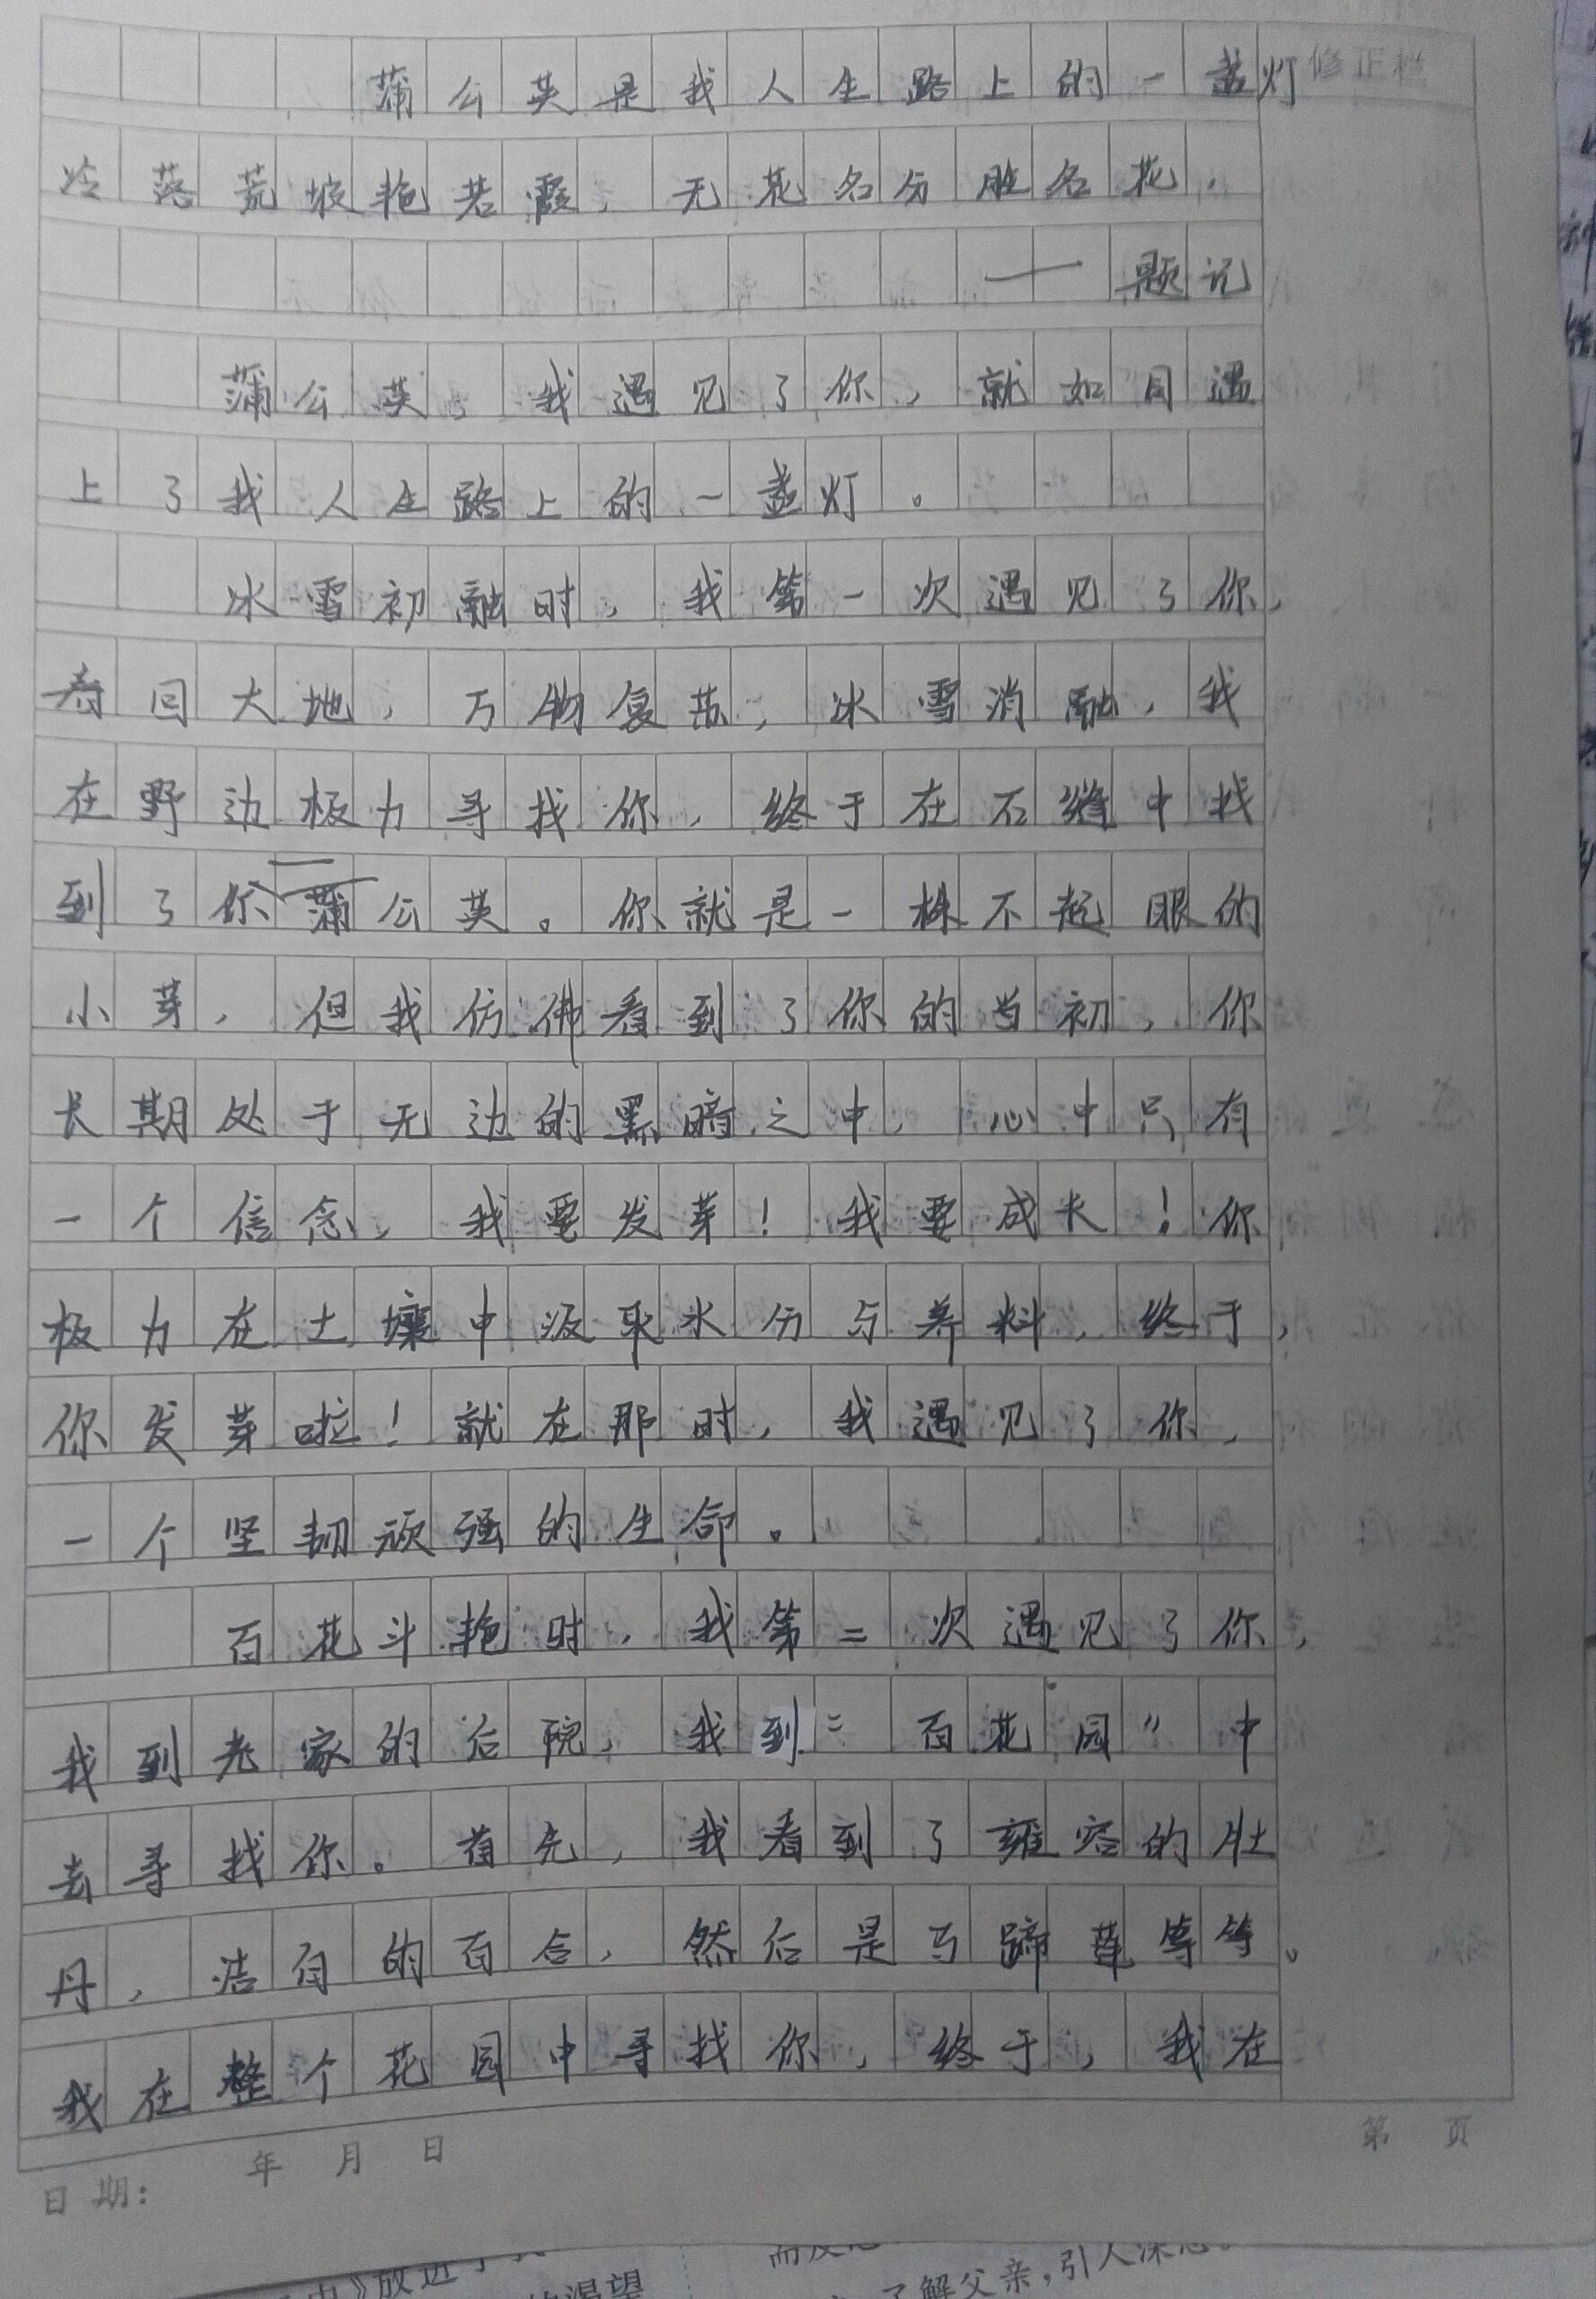 蒲公英是我人生路上的一盏灯
修正栏
冷落荒坡艳若霞，无花名分胜名花，
——题记
蒲公英，我遇见了你，就如同遇
上了我人生路上的一盏灯。
冰雪初融时，我第一次遇见了你，
春回大地，万物复苏，冰雪消融，我
在野边极力寻找你，终于在石缝中找
到了你——蒲公英。你就是一株不起眼的
小芽，但我仿佛看到了你的当初，你
长期处于无边的黑暗之中，心中只有
一个信念，我要发芽！我要成长！你
极力在土壤中汲取水分与养料，终于，
你发芽啦！就在那时，我遇见了你，
一个坚韧顽强的生命。
百花斗艳时，我第二次遇见了你，
我到老家的后院，我到“百花园”中
去寻找你。首先，我看到了雍容的牡
丹，洁白的百合，然后是马蹄莲等等。
我在整个花园中寻找你，终于，我在
日期： 年 月 日
第 页
了解父亲，引人深思。
的渴望